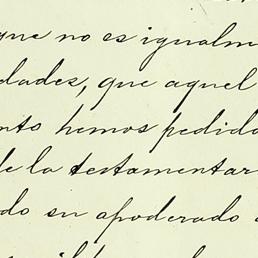 que no es igualm
dades, que aquel
nto hemos pedido
de la testamentar
do su apoderado